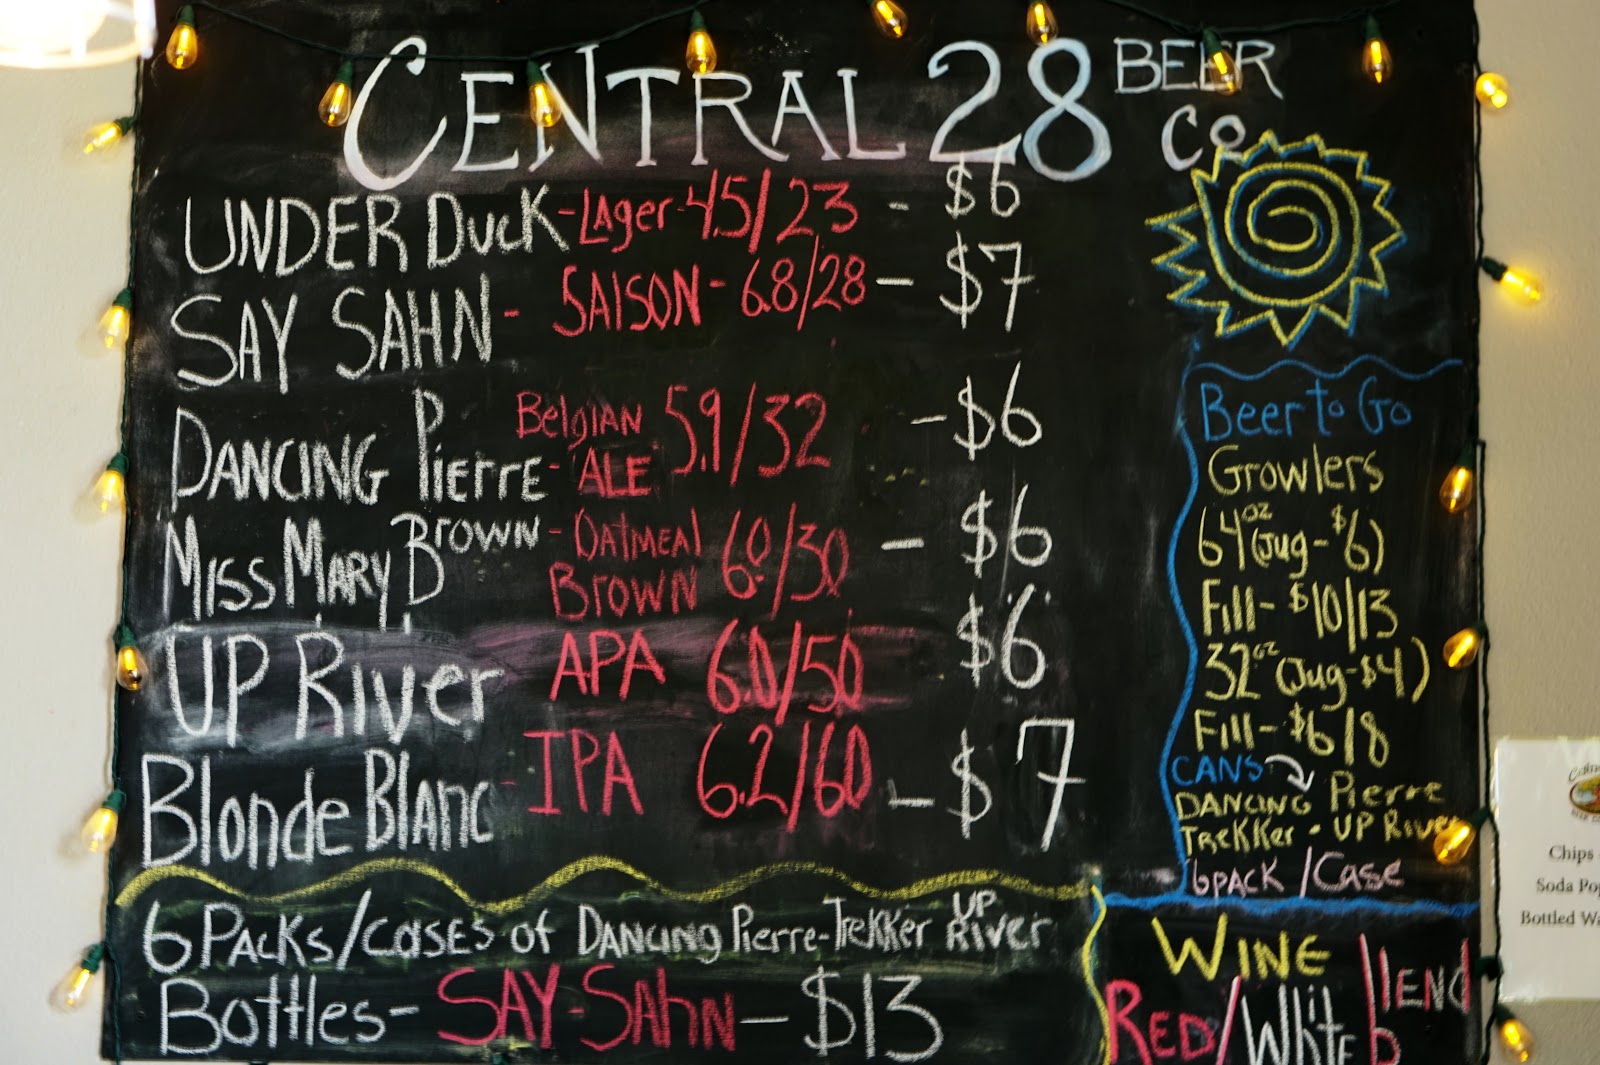 CENTRAL 28 BEER
Co
UNDER DucK-LAger-4.5/23 - $6
SAY SAHN- SAISON- 6.8/28 - $7
DANCING Pierre- BelgIAN ALE 5.9/32 - $6
MISS MARY BROWN- OATMEAL BROWN 6.0/30 - $6
UP RIVer APA 6.0/50 $6
Blonde Blanc- IPA 6.2/60 - $7
6 PACKS/CASES OF DANCING Pierre-TreKKer UP RIVer
Bottles- SAY-SAhN - $13
Beer to Go
Growlers
64oz (Jug-$6)
Fill- $10/13
32oz (Jug-$4)
Fill- $6/8
CANS
DANCING Pierre
TreKKer - UP River
6pack/Case
WINE
RED/White blend
Chips
Soda
Bottled